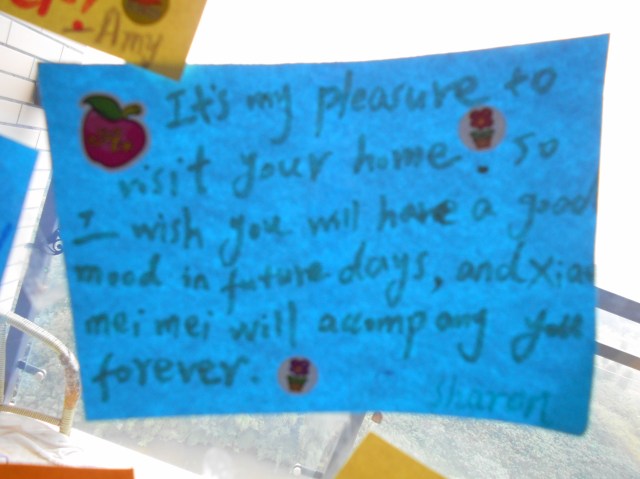 - Amy
It's my pleasure to
visit your home. So
I wish you will have a good
mood in future days, and Xiao
mei mei will accompany you
forever.
Sharon